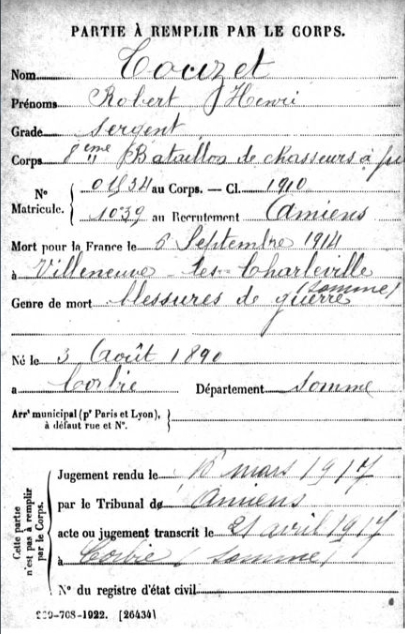 PARTIE À REMPLIR PAR LE CORPS.
Nom Couzet
Prénoms Robert Henri
Grade Sergent
Corps 8ème Bataillon de chasseurs à
N° Matricule. au Corps. — Cl. 1910
1039 au Recrutement Amiens
Mort pour la France le 6 Septembre 1914
à Villeneuve-les-Charleville
(Somme)
Genre de mort blessures de guerre
Né le 3 Août 1890
à Corbie Département Somme
Arrt municipal (pr Paris et Lyon),
à défaut rue et N°.
Cette partie n'est pas à remplir par le Corps.
Jugement rendu le mars 1917
par le Tribunal de Amiens
acte ou jugement transcrit le 21 avril 1917
à Corbie (Somme)
N° du registre d'état civil
-708-1922. [26434]